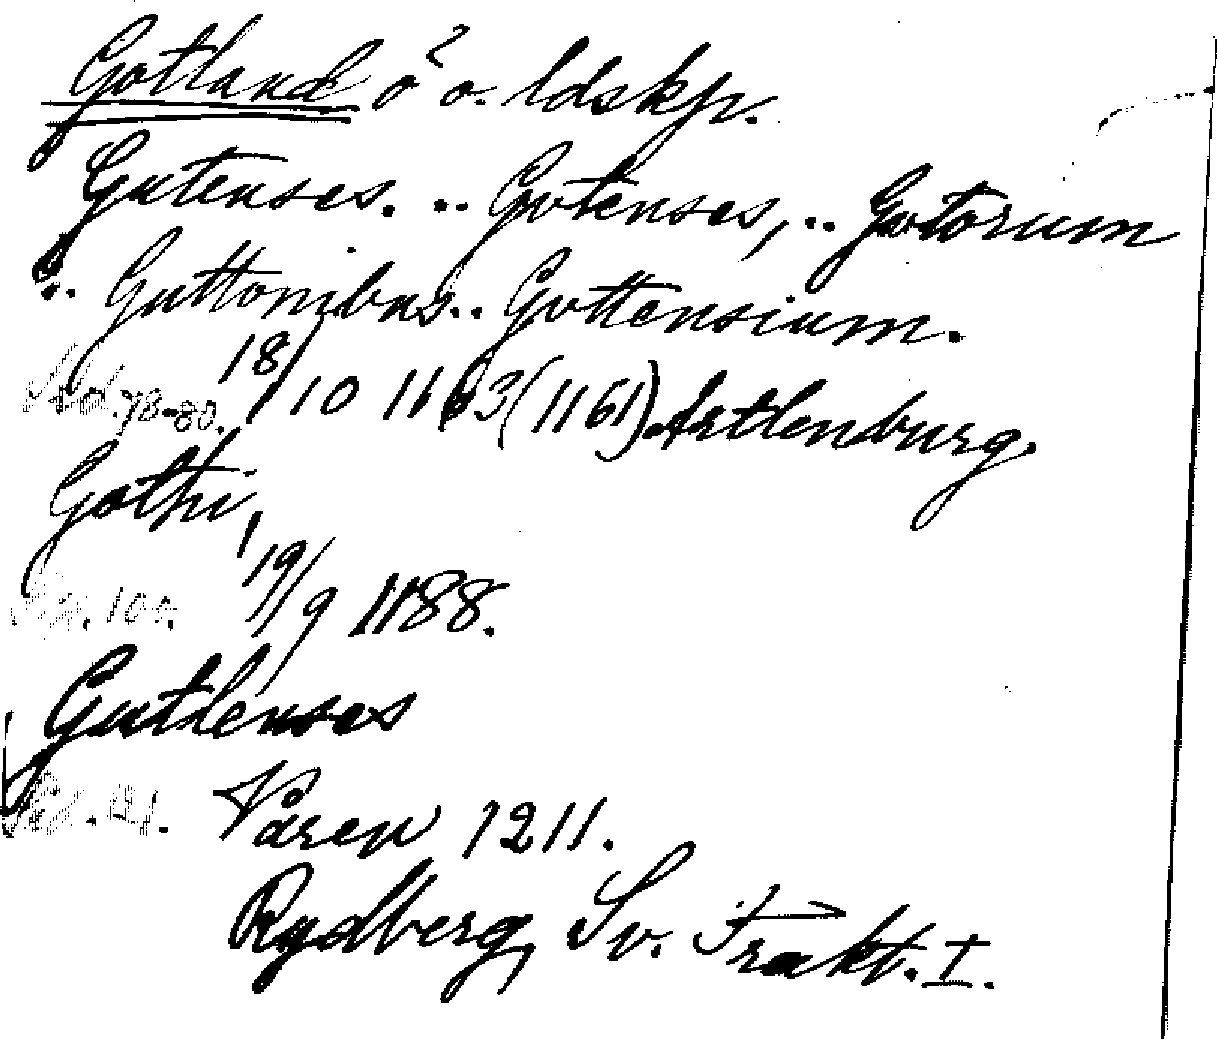 Gotland ö o. ldskp.
Gutenses. .. Gutenses, .. Gutorum
.. Guttonibus .. Guttensium.
Sid. 78-80. 18/10 1163 (1161) Artlenburg.
Gothi,
Sid. 100. 19/9 1188.
Guthenses
Sid. 121. Våren 1211.
Rydberg, Sv. Trakt. I.